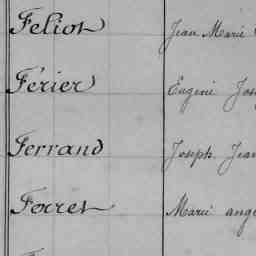 Feliot Jean Marie
Férier Eugène Jos
Ferrand Joseph Jean
Forret Marie ange